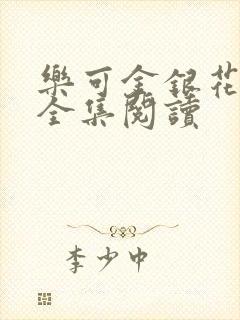 樂可金銀花
全集閱讀
李少中